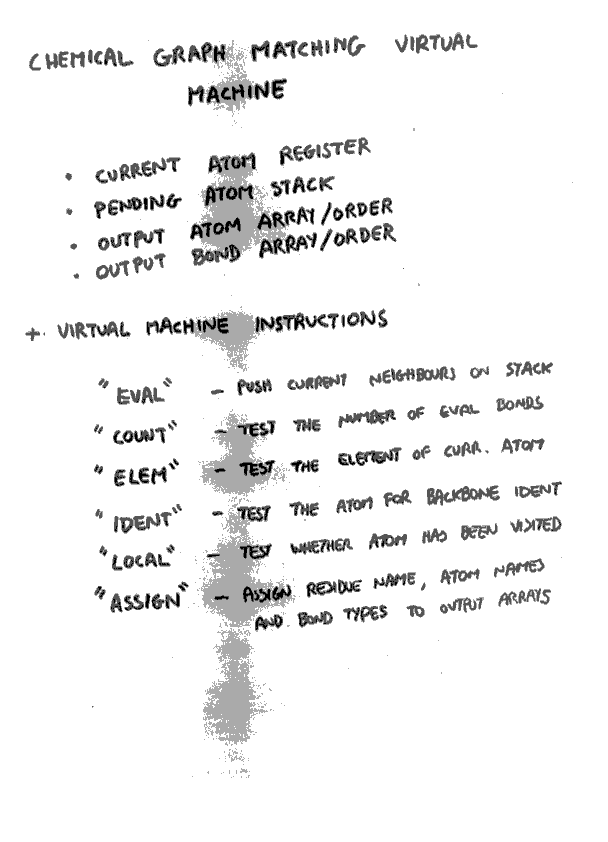 CHEMICAL GRAPH MATCHING VIRTUAL
MACHINE
• CURRENT ATOM REGISTER
• PENDING ATOM STACK
• OUTPUT ATOM ARRAY/ORDER
• OUTPUT BOND ARRAY/ORDER
+ VIRTUAL MACHINE INSTRUCTIONS
"EVAL" – PUSH CURRENT NEIGHBOURS ON STACK
"COUNT" – TEST THE NUMBER OF EVAL BONDS
"ELEM" – TEST THE ELEMENT OF CURR. ATOM
"IDENT" – TEST THE ATOM FOR BACKBONE IDENT
"LOCAL" – TEST WHETHER ATOM HAS BEEN VISITED
"ASSIGN" – ASSIGN RESIDUE NAME, ATOM NAMES
AND BOND TYPES TO OUTPUT ARRAYS